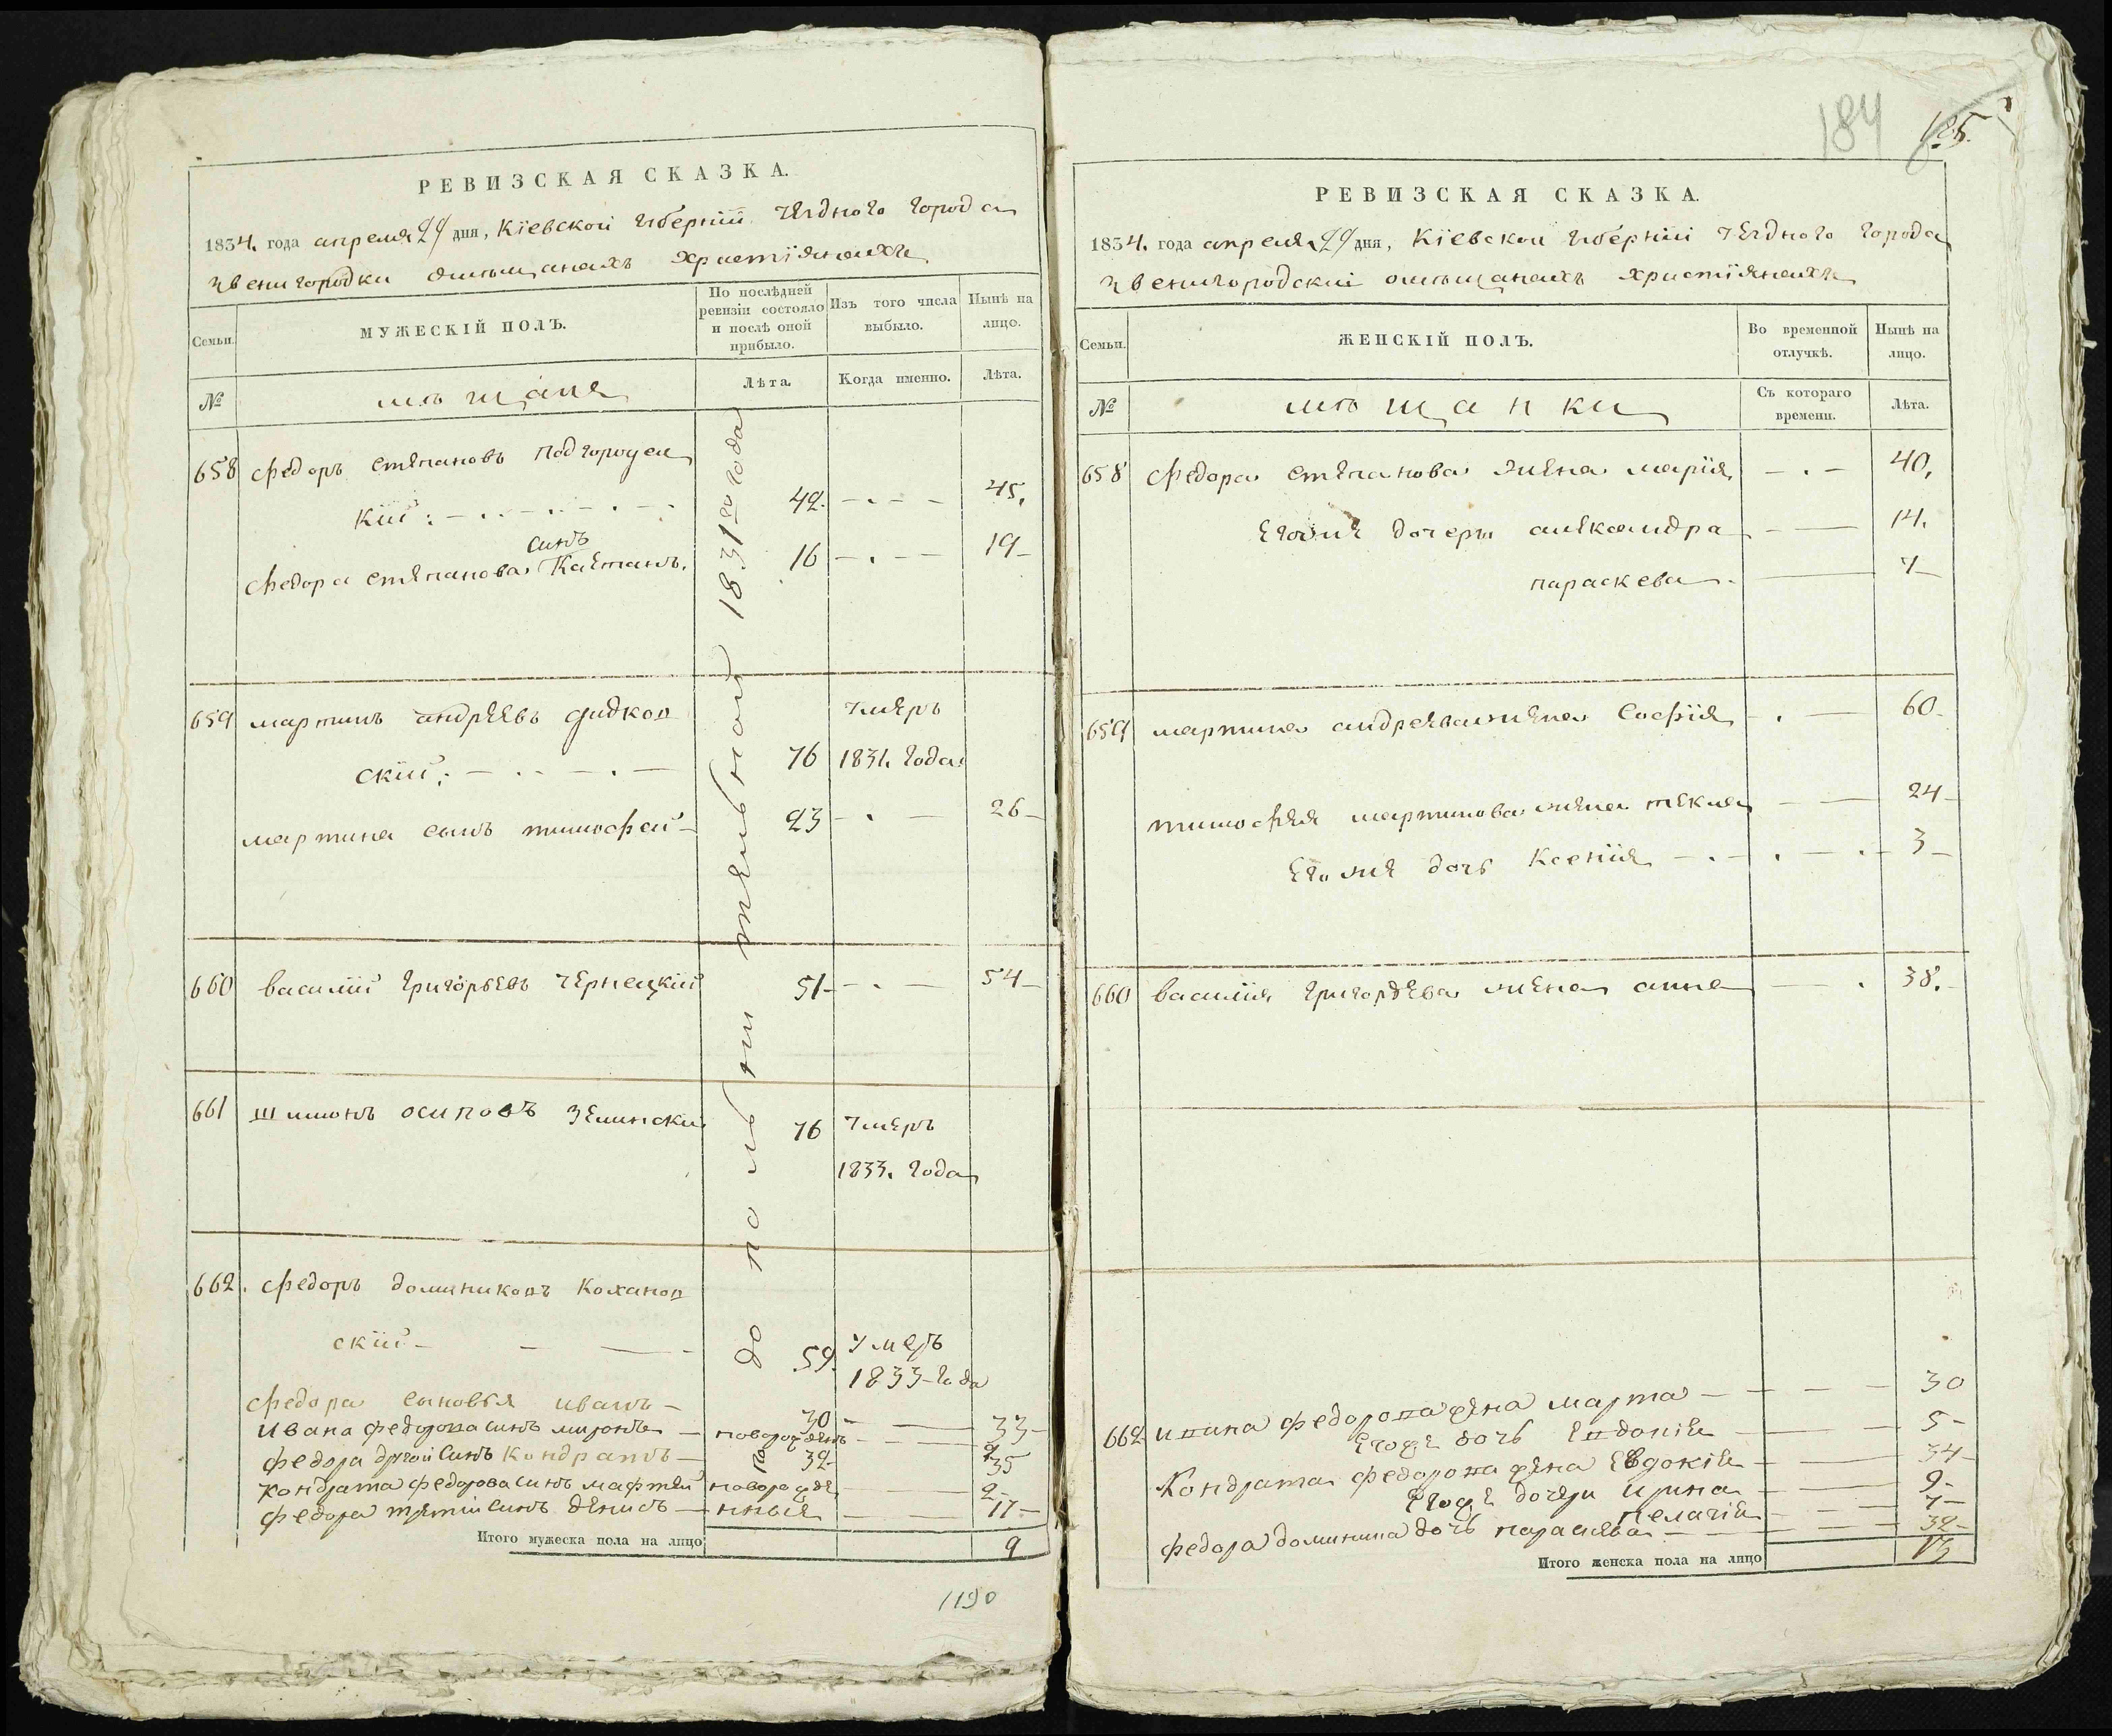 РЕВИЗСКАЯ СКАЗКА.
1834. года апреля 29 дня, Кіевской Губерніи Уезднаго города
Звенигородки омѣщанахъ христіянахъ
Семьи.
МУЖЕСКІЙ ПОЛЪ.
По послѣдней ревизіи состояло и послѣ оной прибыло.
Изъ того числа выбыло.
Нынѣ на лицо.
№
мѣщане
Лѣта.
Когда именно.
Лѣта.
до полнительной 1831го года
658 Федоръ степановъ Подгороцс
кій 42. 45.
сынъ
Федора степанова Каетанъ. 16 19
659 мартинъ андреевъ
скій 76 умеръ 1831. года
мартина сынъ тимофей 23 26
660 василій григорьевъ чернецкій 51 54
661 Шимонъ осиповъ Зелинскій 76 умеръ
1833. года
662. Федоръ доминиковъ Коханов
скій 59. умеръ
1833 года
Федора сыновья иванъ 30 33
Ивана Федорова синъ миронъ новорожденъ 2
Федора другой синъ Кондратъ 32 35
Кондрата Федорова синъ мафтей новорожде 2
Федора третій синъ денисъ нные 17
Итого мужеска пола на лицо 9
1190
184
185.
РЕВИЗСКАЯ СКАЗКА.
1834. года апреля 29 дня, Кіевской Губерніи Уезднаго города
Звенигородский омѣщанахъ христіянахъ
Семьи.
ЖЕНСКІЙ ПОЛЪ.
Во временной отлучкѣ.
Нынѣ на лицо.
№
мѣщанки
Съ котораго времени.
Лѣта.
658 Федора степанова жена марія 40.
Егоже дочери александра 14.
параскева 7
659 мартина андреева жена Софія 60
тимофея мартинова жена текля 24
Егоже дочь Ксенія 3
660 василія григорьева жена анна 38.
662 Ивана Федорова жена марта 30
Егоже дочь Евдокія 5
Кондрата Федорова жена Евдокія 34
Егоже дочери Ирина 9
Пелагія 7
Федора доминика дочь параскева 32
Итого женска пола на лицо 13